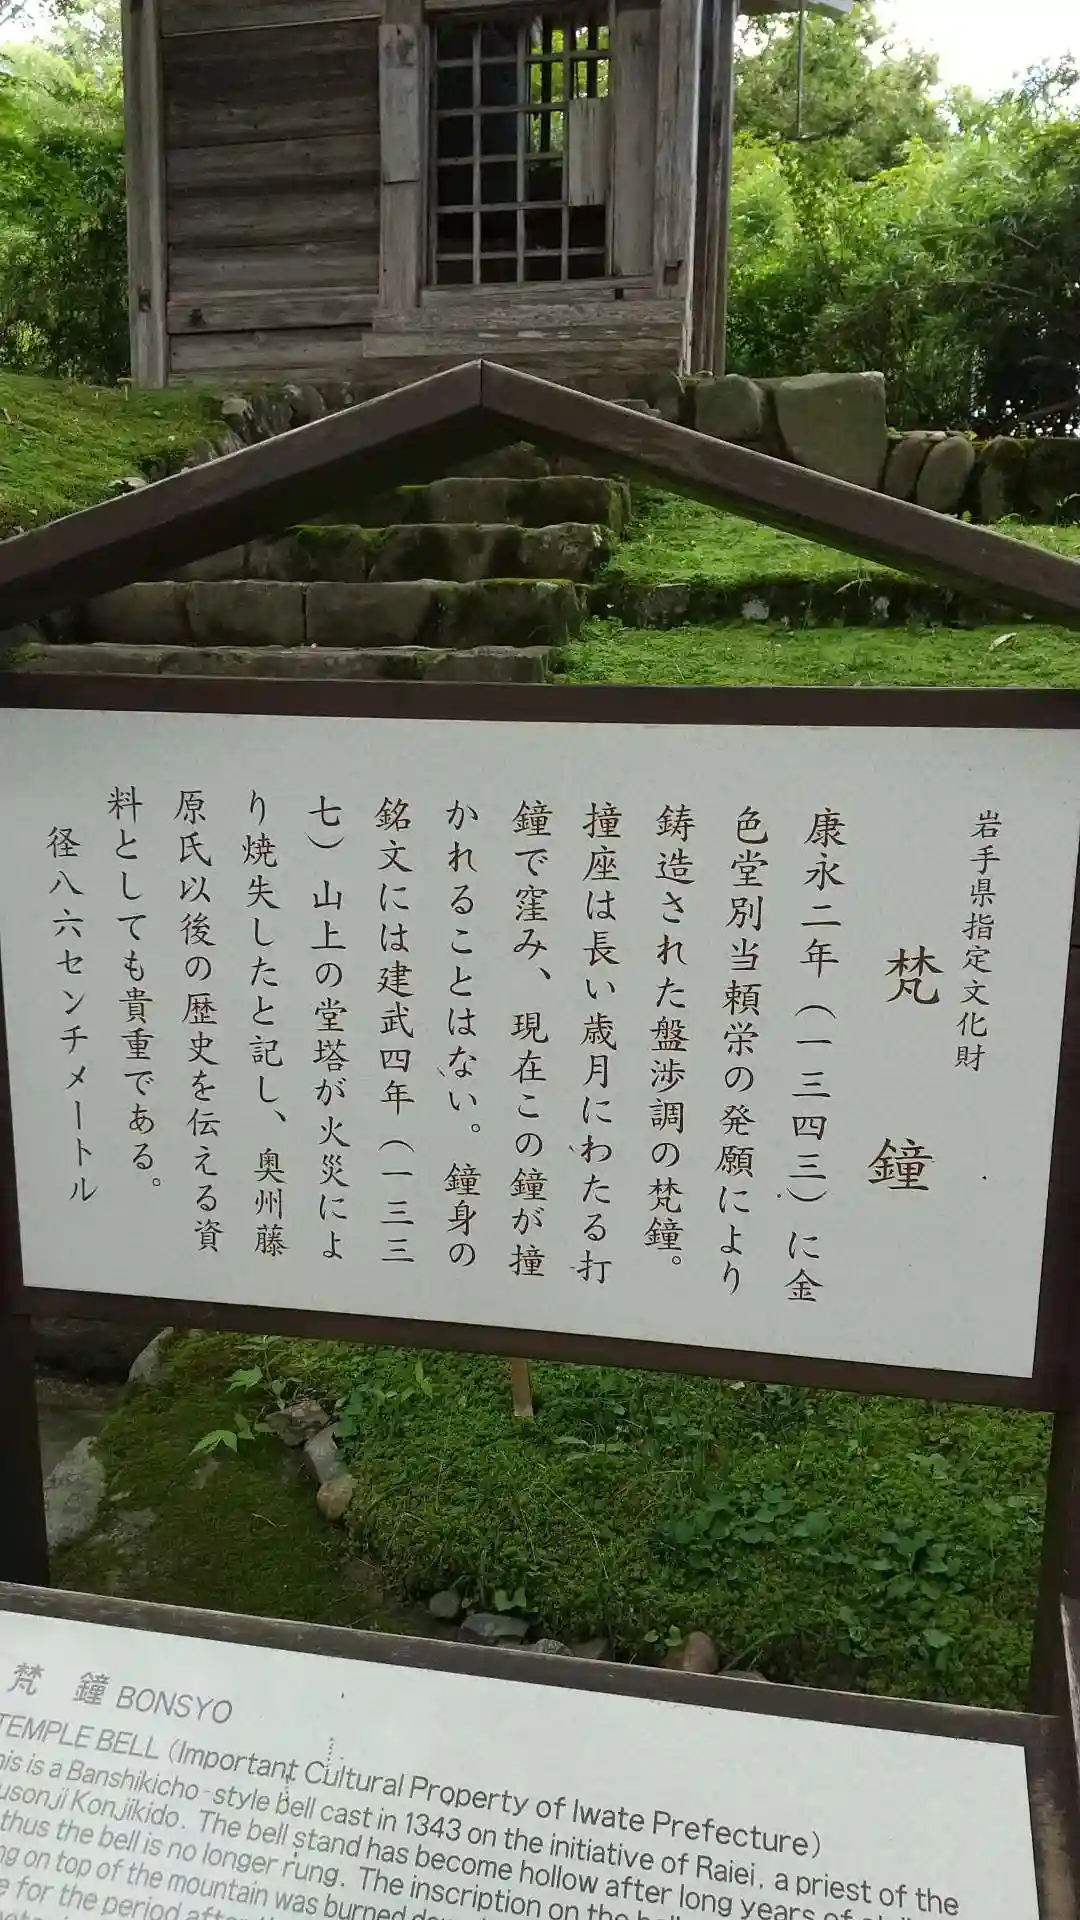 岩手県指定文化財
梵鐘
康永二年（一三四三）に金
色堂別当頼栄の発願により
鋳造された盤渉調の梵鐘。
撞座は長い歳月にわたる打
鐘で窪み、現在この鐘が撞
かれることはない。鐘身の
銘文には建武四年（一三三
七）山上の堂塔が火災によ
り焼失したと記し、奥州藤
原氏以後の歴史を伝える資
料としても貴重である。
径八六センチメートル
梵 鐘 BONSYO
TEMPLE BELL (Important Cultural Property of Iwate Prefecture)
is is a Banshikicho-style bell cast in 1343 on the initiative of Raiei, a priest of the
usonji Konjikido. The bell stand has become hollow after long years of
thus the bell is no longer rung. The inscription on the
on top of the mountain was burned
for the period after